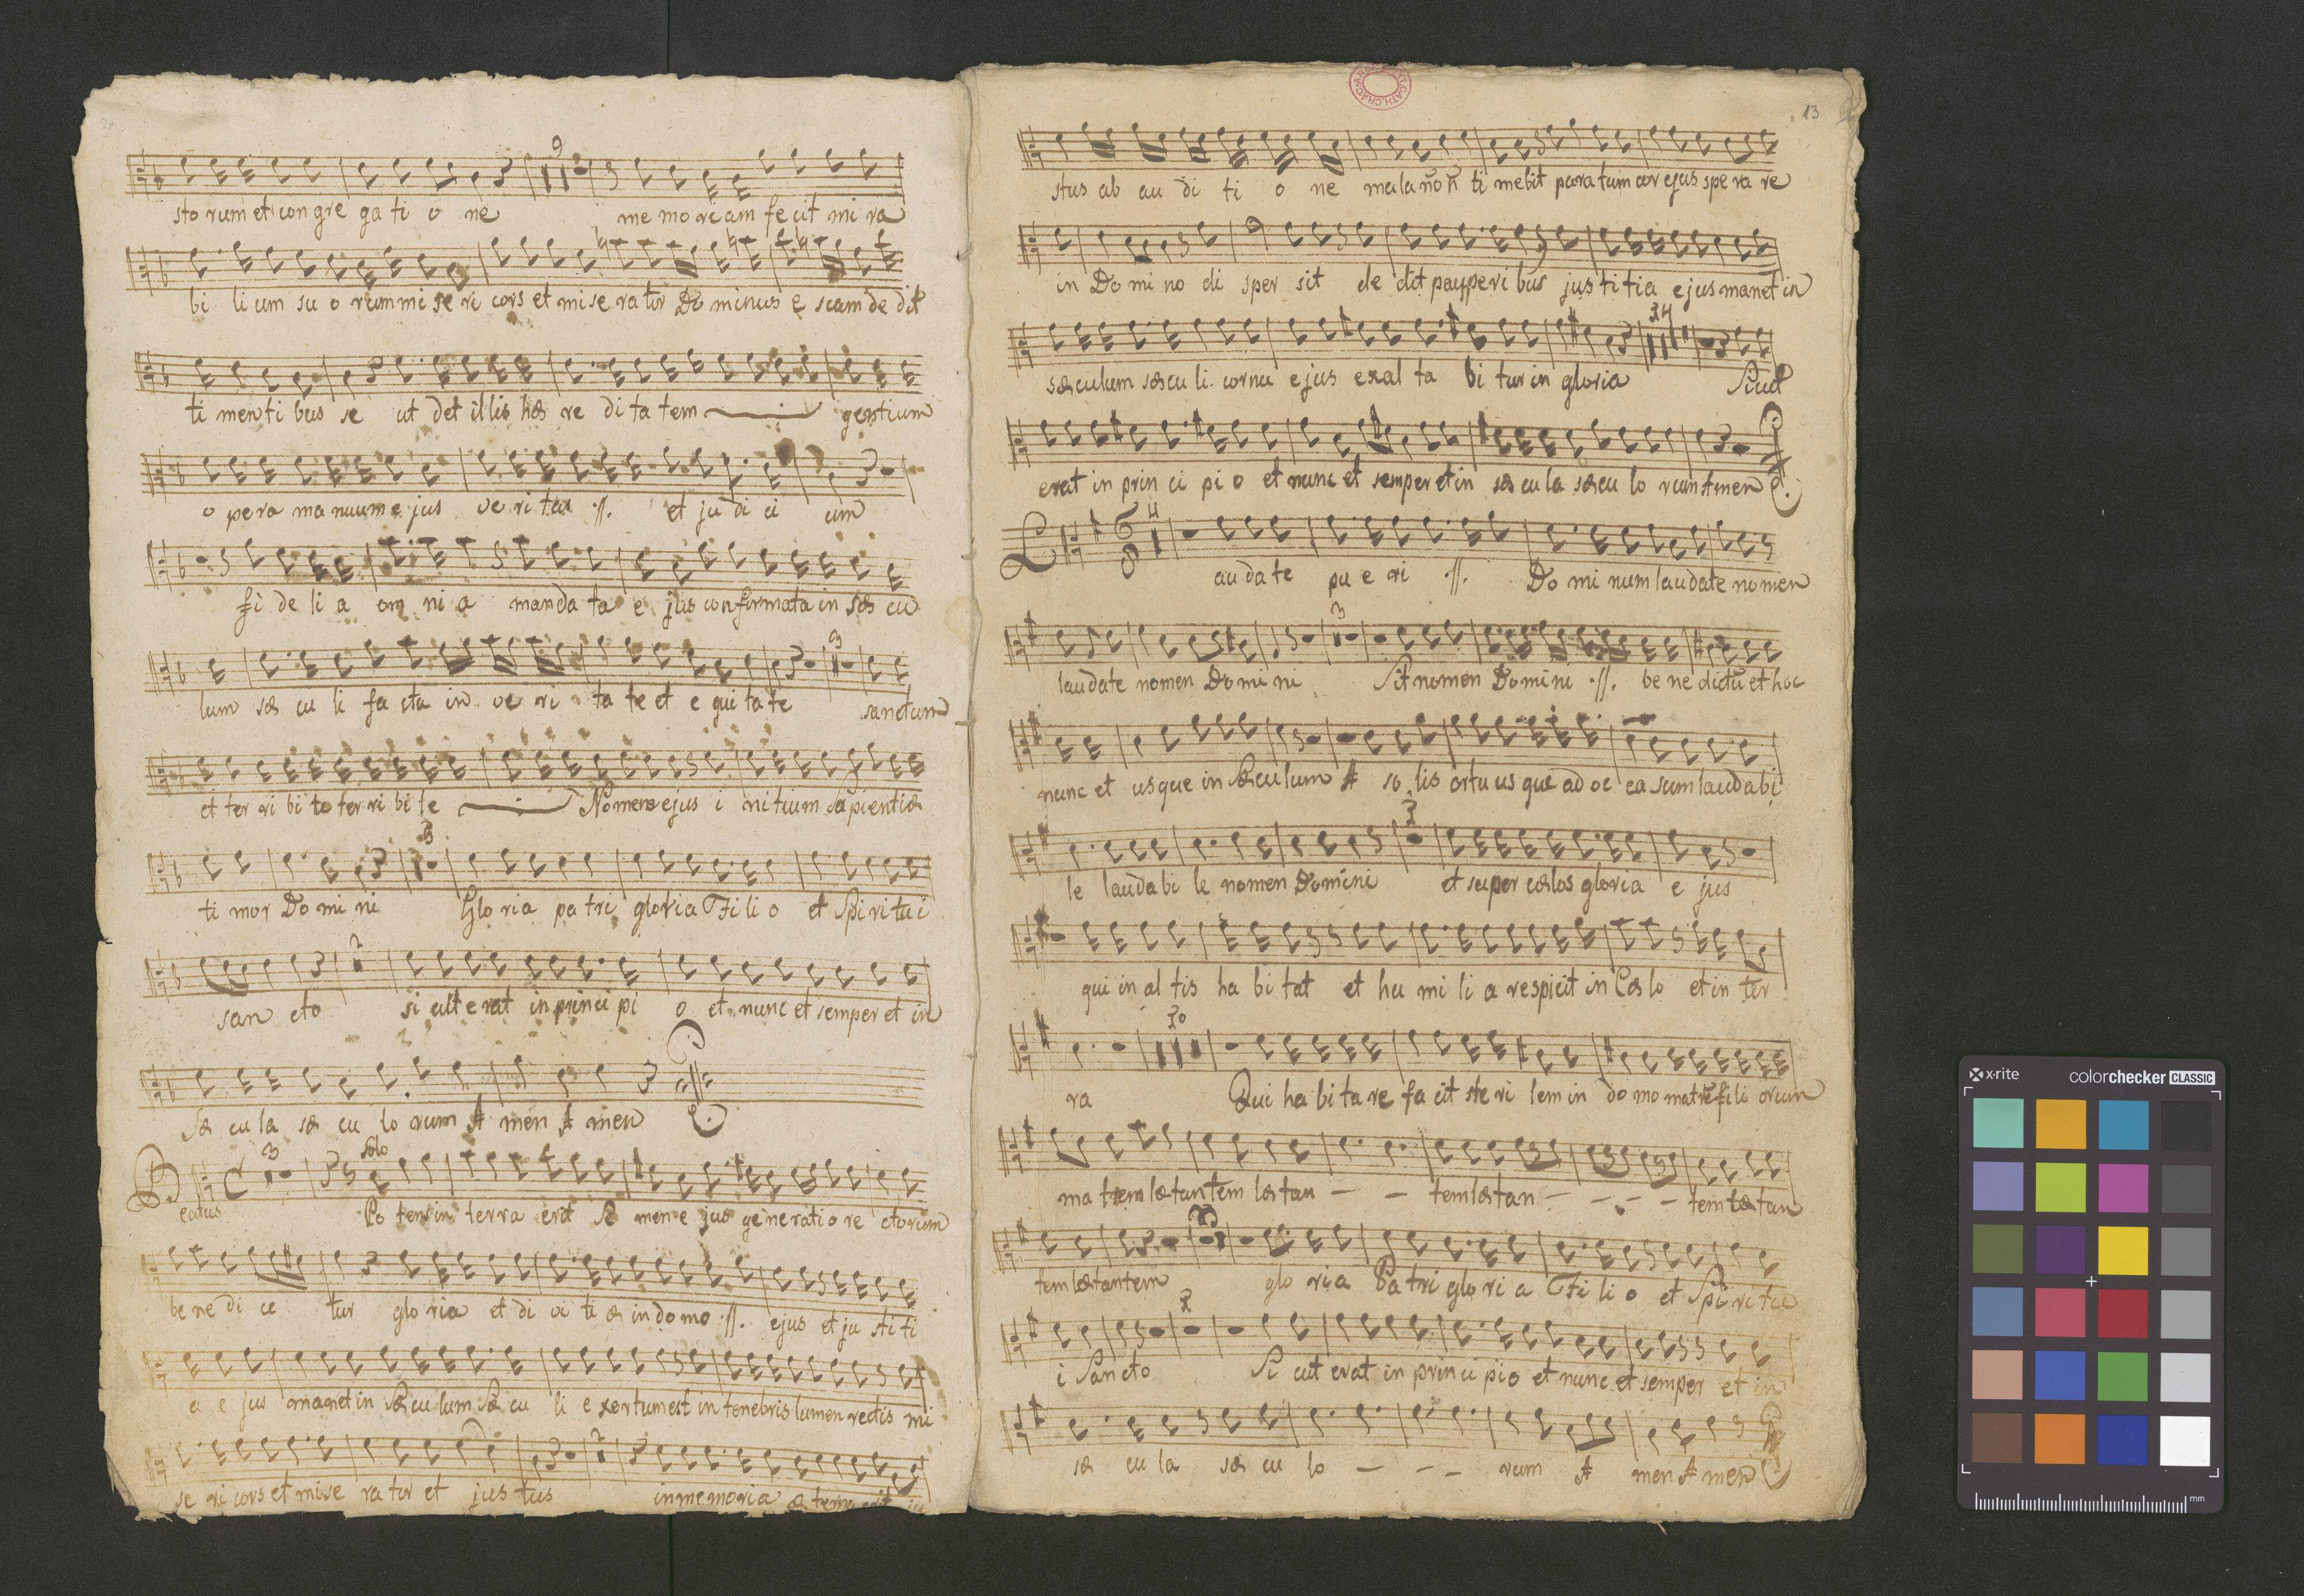 9
sto rum et con gre ga ti o ne me mo ri am fe cit mi ra
bi li um su o rum mi se ri cors et mi se rator Do minus e scam de dit
ti menti bus se ut det illis hæ re di ta tem gentium
o pera ma nuum e jus ve ri tas .//. et ju di ci um
fi de li a om ni a manda ta e jus confirmata in sæ cu
3
lum sæ cu li fa cta in ve ri ta te et e qui ta te sanctum
et ter ri bi te ter ri bi le Nomen ejus i nitium sapientiæ
3
ti mor Do mi ni Glo ria pa tri gloria Fi li o et Spi ri tu i
2
san cto si cut e rat in prin ci pi o et nunc et semper et in
Sæ cu la sæ cu lo rum A men A men
B 3 solo
eatus Po tens in terra erit Se men e jus ge ne rati o re ctorum
be ne di ce tur glo ria et di vi ti æ in domo .//. ejus et ju sti ti
a e jus manet in Sæ cu lum Sæ cu li e xortum est in tenebris lumen rectis mi
2
se ri cors et mi se ra tor et jus tus in memoria æ terna erit ju
13
stus ab au di ti o ne mala non ti mebit paratum cor ejus spe ra re
in Do mi no di sper sit de dit pauperi bus jus ti tia ejus manet in
14
sæculum sæcu li cornu ejus exal ta bi tur in gloria Sicut
erat in prin ci pi o et nunc et semper et in sæ cu la sæcu lo rum Amen
L 6 8 4
audate pu e ri .//. Do mi num laudate nomen
3
laudate nomen Domi ni Sit nomen Domi ni .//. be ne dictũ et hoc
nunc et usque in Sæcu lum A so lis ortu us que ad oc ca sum laudabi
1
le laudabi le nomen Domini et super cælos gloria e jus
qui in al tis ha bi tat et hu mi li a respicit in Cæ lo et in ter
10
ra Qui ha bi ta re fa cit ste ri lem in do mo matrẽ fi li orum
ma trem lætantem lætan – – tem lætan – – – – tem lætan
tem lætantem glo ria Pa tri glo ri a Fi li o et Spi ri tu
1
i Sancto Si cut erat in princi pi o et nunc et semper et in
sæ cu la sæ cu lo – – – rum A men A men
x-rite colorchecker CLASSIC
mm